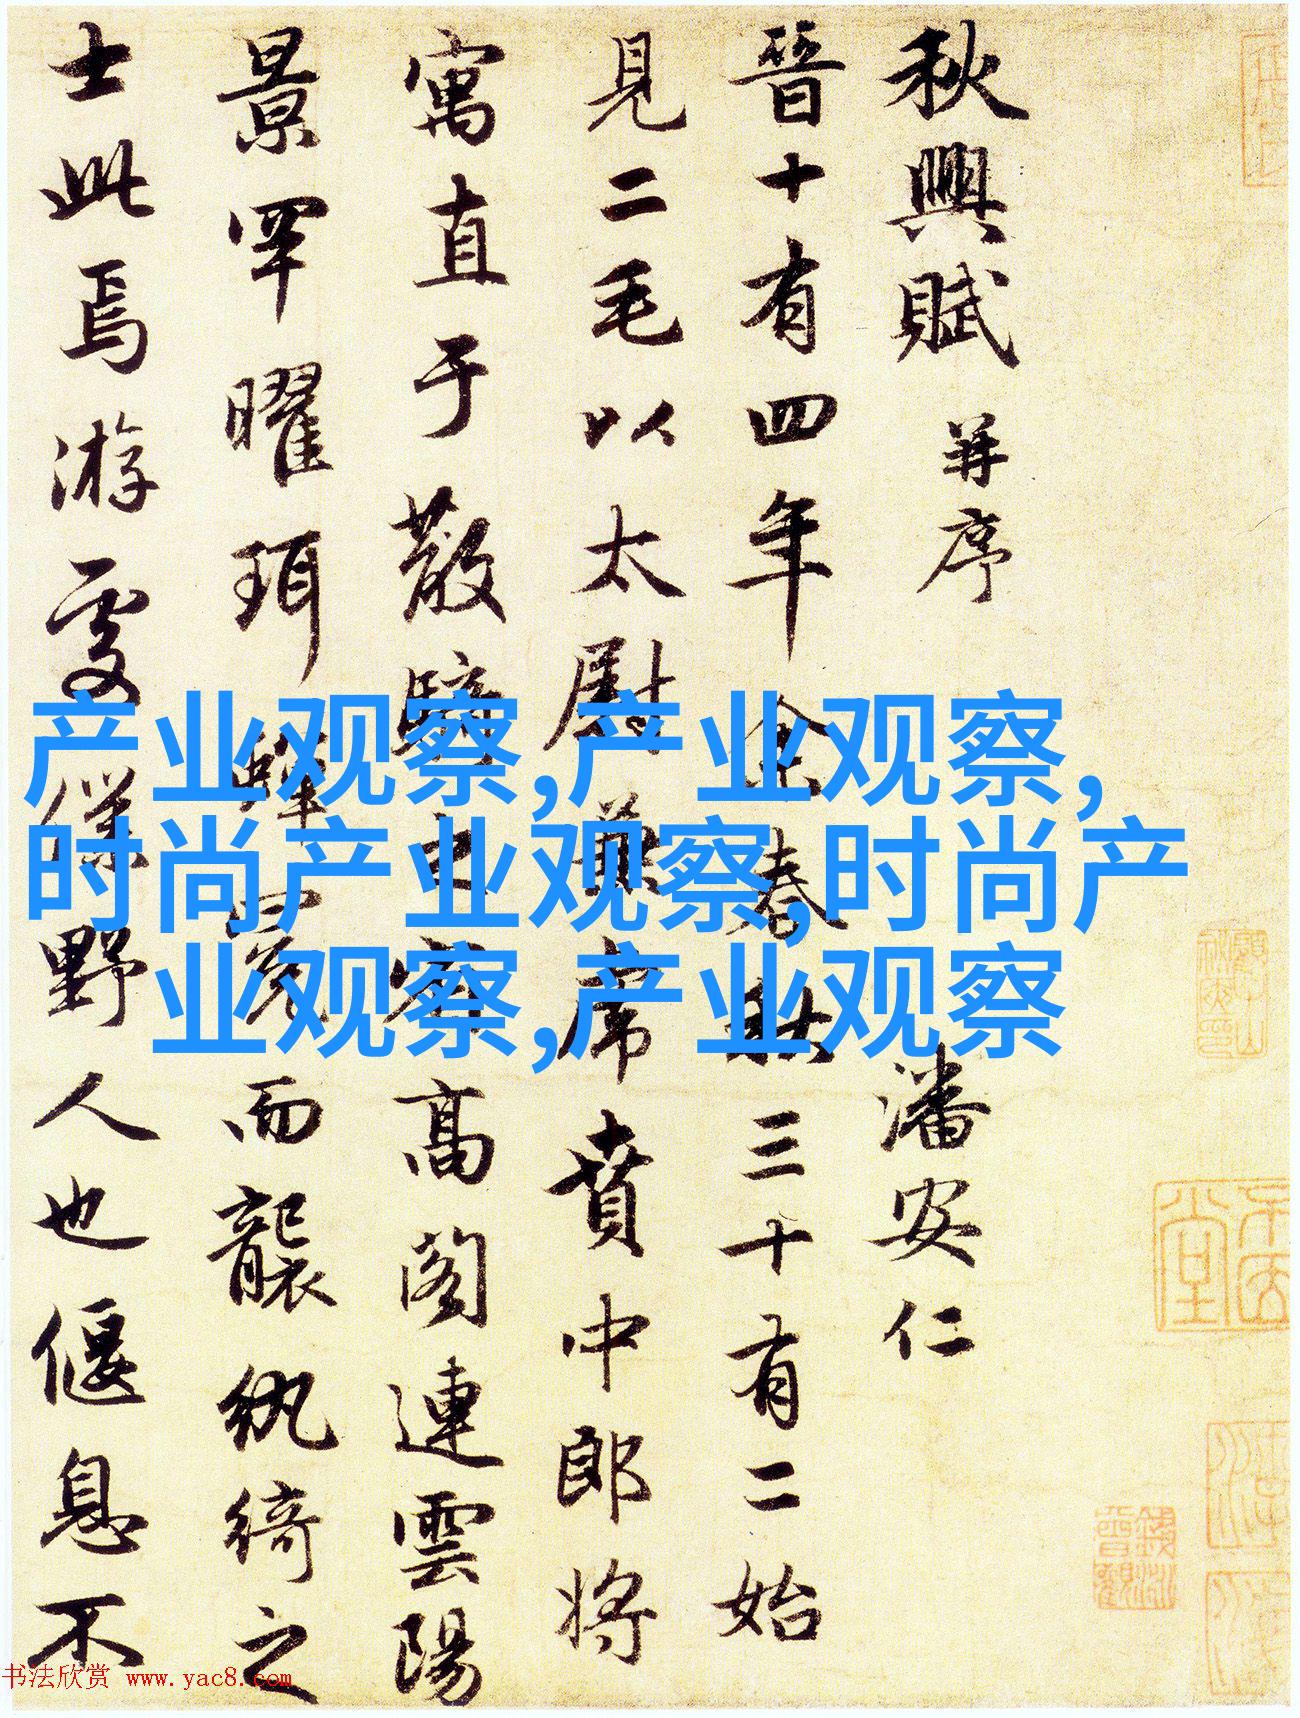 秋興賦 并序 潘安仁
晉十有四年余春秋三十有二始
見二毛以太尉兼虎賁中郎将
寓直于散騎之省高閣連雲陽
景罕曜珥蟬冕而襲紈綺之
士此焉游處僕野人也偃息不
产业观察,产业观察,
时尚产业观察,时尚产
业观察,产业观察
书法欣赏 www.yac8.com